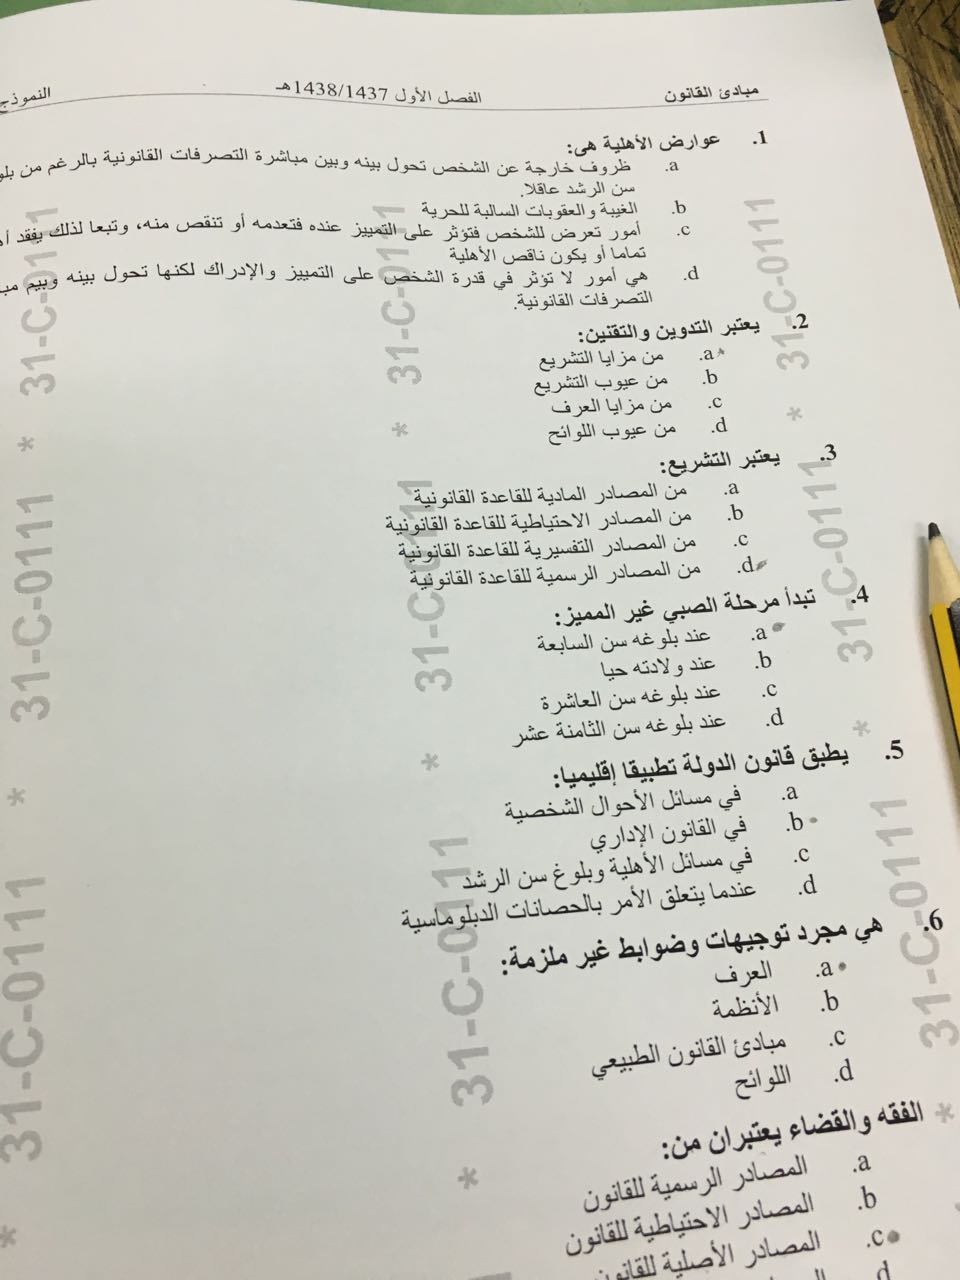 مبادئ القانون
الفصل الأول 1438/1437هـ
النموذج
1. عوارض الأهلية هى:
a. ظروف خارجة عن الشخص تحول بينه وبين مباشرة التصرفات القانونية بالرغم من
سن الرشد عاقلا.
b. الغيبة والعقوبات السالبة للحرية
c. أمور تعرض للشخص فتؤثر على التمييز عنده فتعدمه أو تنقص منه، وتبعا لذلك يفقد
تماما أو يكون ناقص الأهلية
d. هي أمور لا تؤثر في قدرة الشخص على التمييز والإدراك لكنها تحول بينه وبيم
التصرفات القانونية.
2. يعتبر التدوين والتقنين:
a. من مزايا التشريع
b. من عيوب التشريع
c. من مزايا العرف
d. من عيوب اللوائح
3. يعتبر التشريع:
a. من المصادر المادية للقاعدة القانونية
b. من المصادر الاحتياطية للقاعدة القانونية
c. من المصادر التفسيرية للقاعدة القانونية
d. من المصادر الرسمية للقاعدة القانونية
4. تبدأ مرحلة الصبي غير المميز:
a. عند بلوغه سن السابعة
b. عند ولادته حيا
c. عند بلوغه سن العاشرة
d. عند بلوغه سن الثامنة عشر
5. يطبق قانون الدولة تطبيقا إقليميا:
a. في مسائل الأحوال الشخصية
b. في القانون الإداري
c. في مسائل الأهلية وبلوغ سن الرشد
d. عندما يتعلق الأمر بالحصانات الدبلوماسية
6. هي مجرد توجيهات وضوابط غير ملزمة:
a. العرف
b. الأنظمة
c. مبادئ القانون الطبيعي
d. اللوائح
الفقه والقضاء يعتبران من:
a. المصادر الرسمية للقانون
b. المصادر الاحتياطية للقانون
c. المصادر الأصلية للقانون
d.
31-C-0111 * 31-C-0111 * 31-C-0111 *
31-C-0111 * 31-C-0111 * 31-C-0111 *
31-C-0111 * 31-C-0111 * 31-C-0111 *